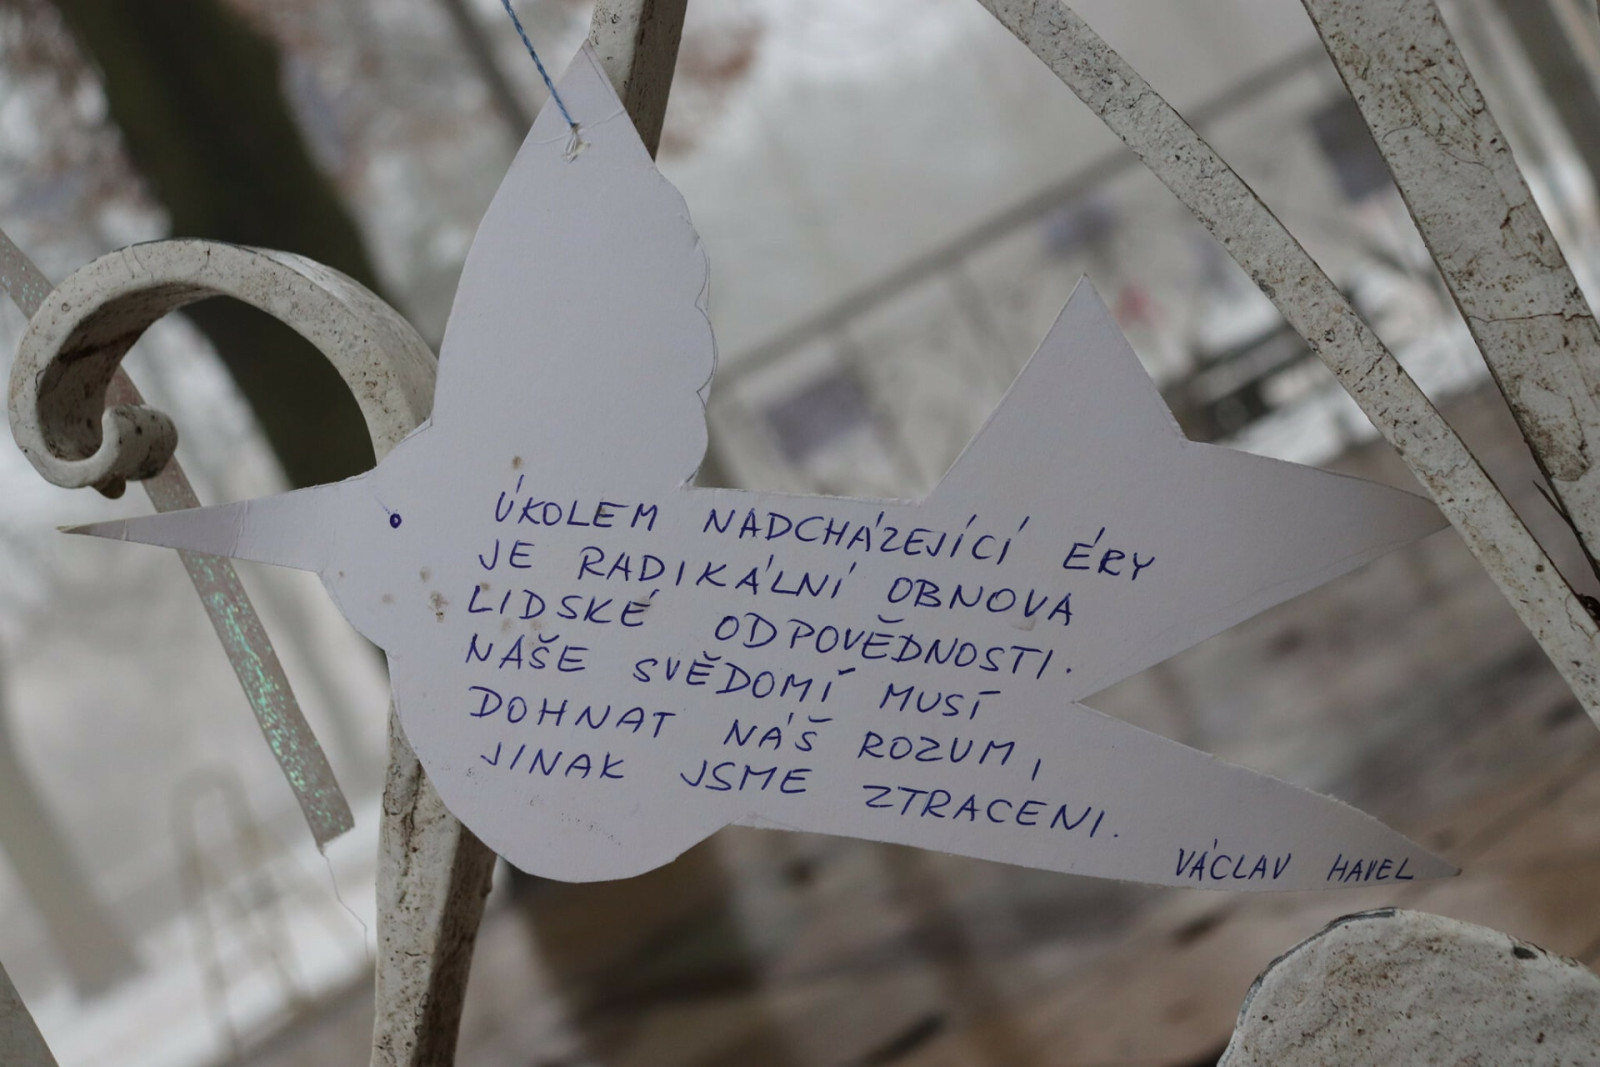 ÚKOLEM NADCHÁZEJÍCÍ ÉRY
JE RADIKÁLNÍ OBNOVA
LIDSKÉ ODPOVĚDNOSTI.
NAŠE SVĚDOMÍ MUSÍ
DOHNAT NÁŠ ROZUM,
JINAK JSME ZTRACENI.
VÁCLAV HAVEL